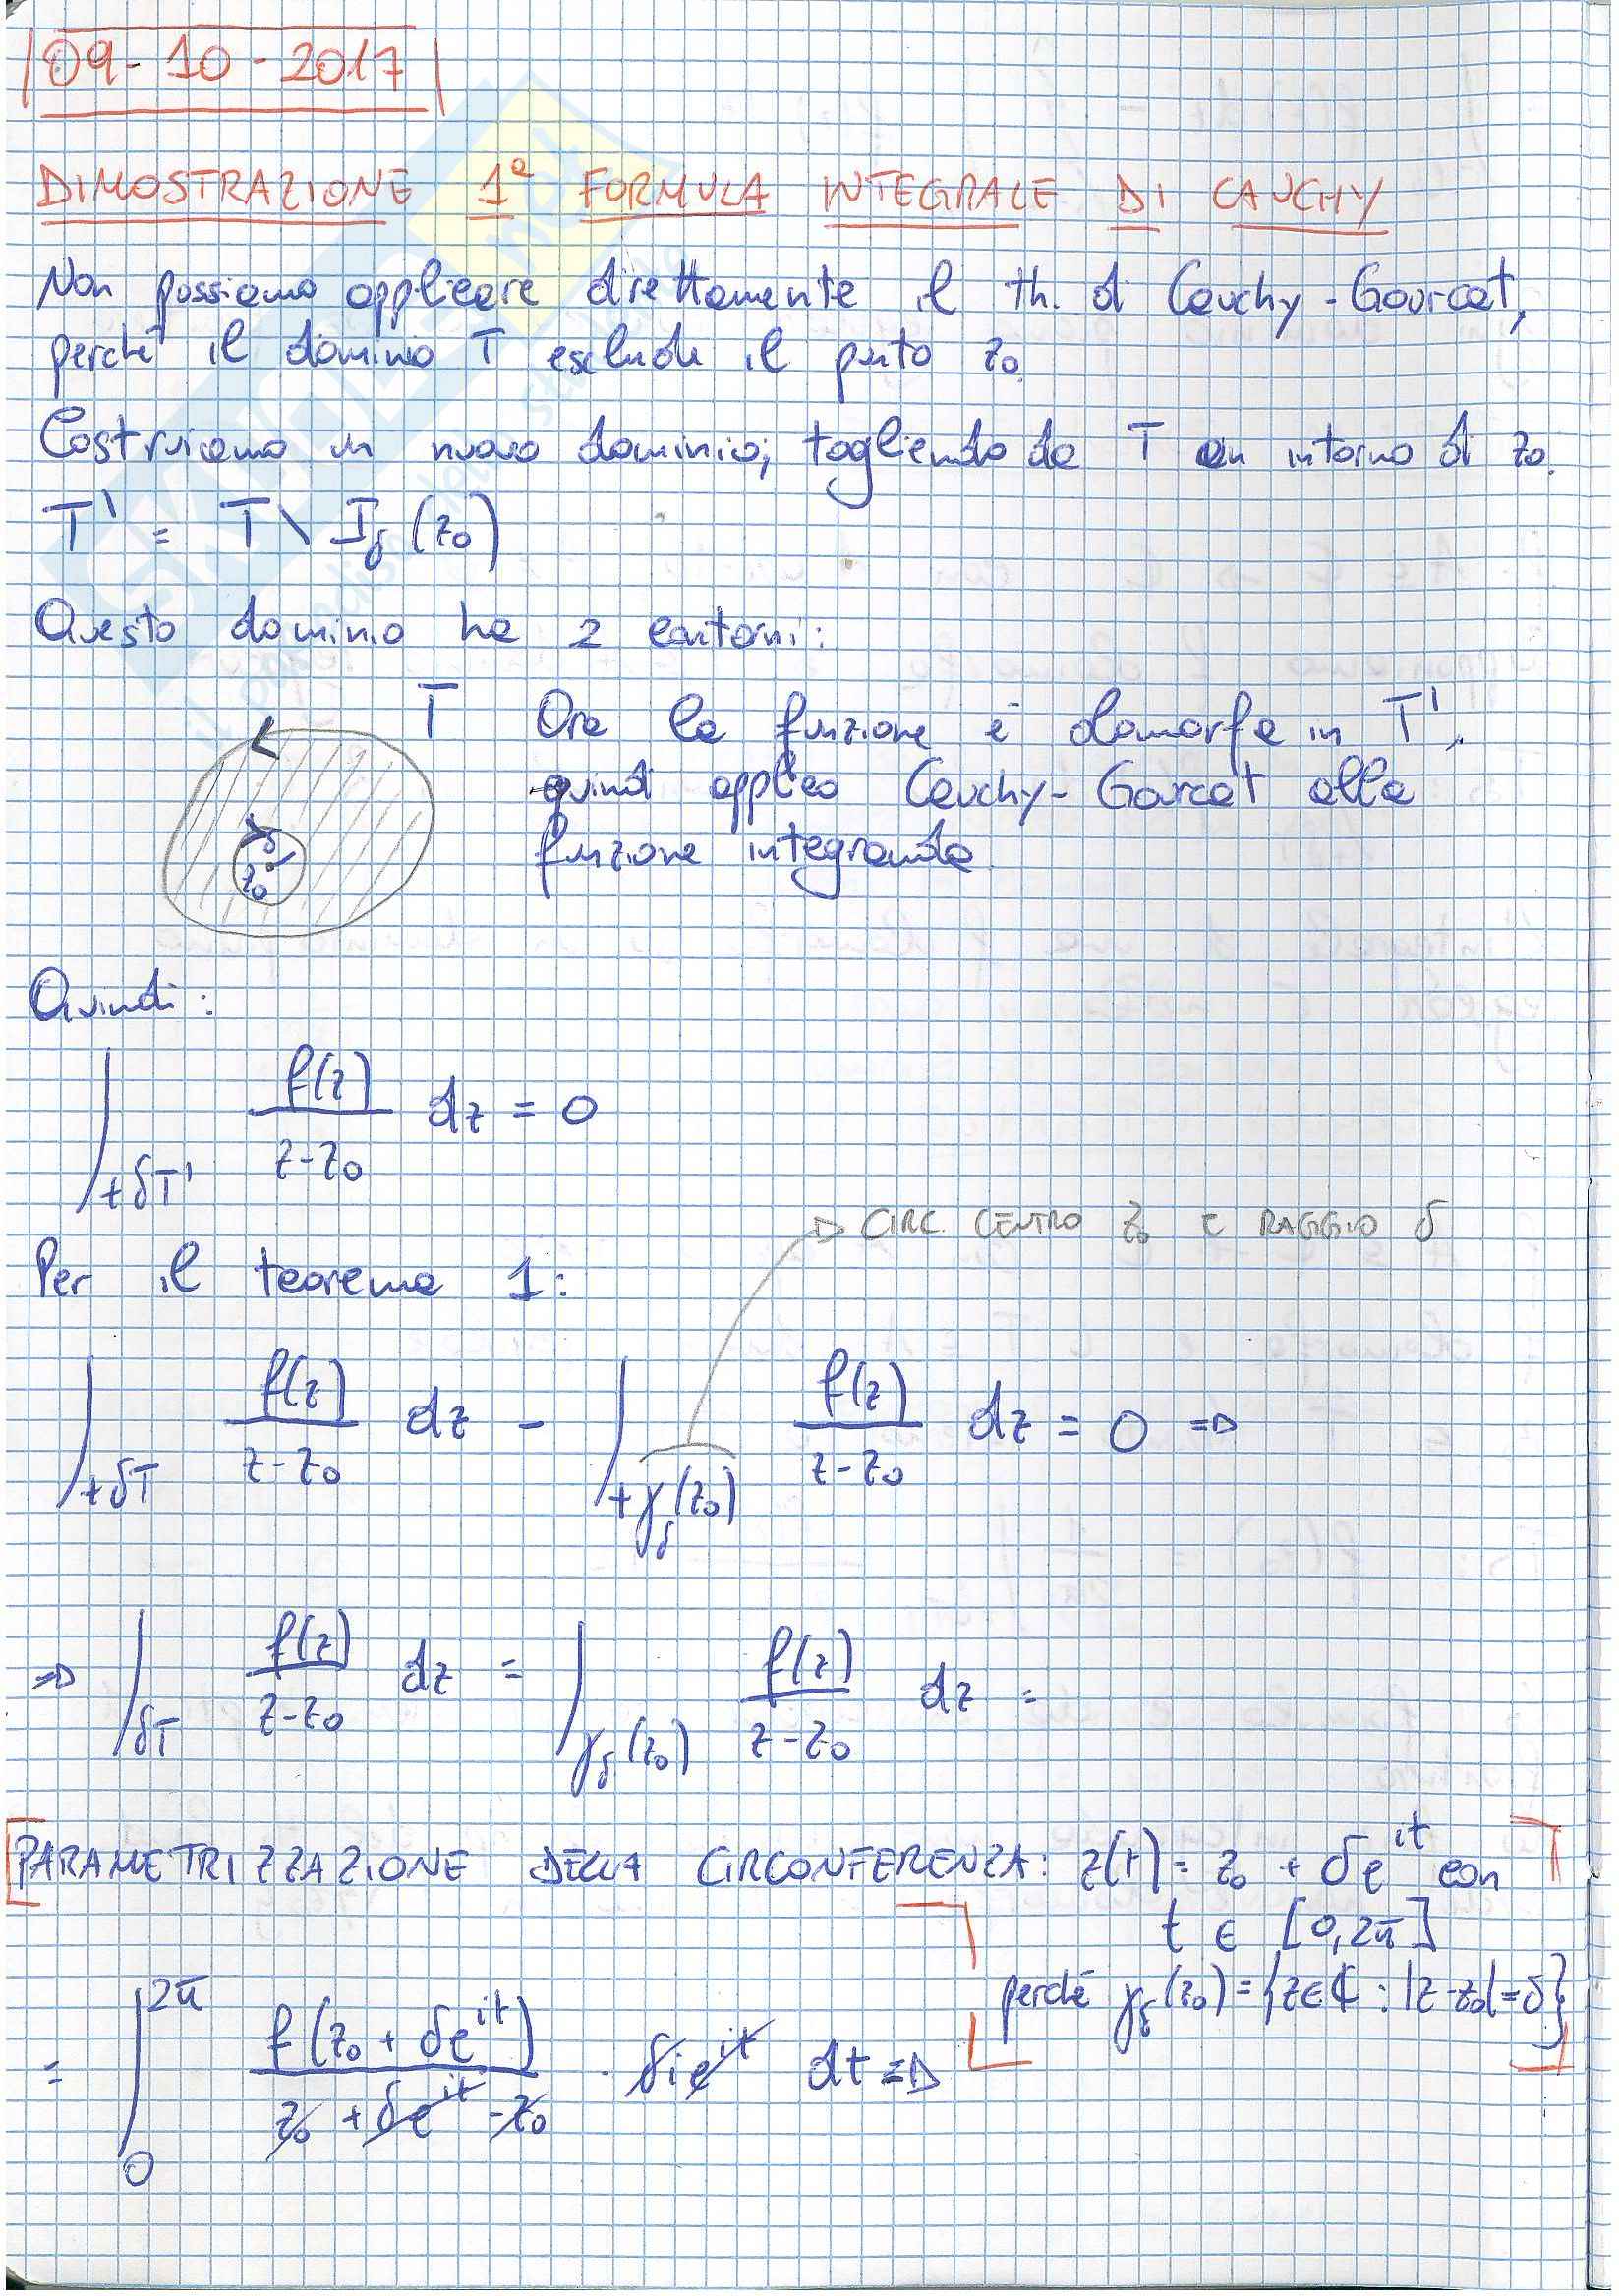 09-10-2017
DIMOSTRAZIONE 1ª FORMULA INTEGRALE DI CAUCHY
Non possiamo applicare direttamente il th. di Cauchy-Goursat,
perché il dominio T esclude il punto z₀.
Costruiamo un nuovo dominio, togliendo da T un intorno di z₀.
T' = T \ I_δ(z₀)
Questo dominio ha 2 contorni:
T
δ
z₀
Ora la funzione è olomorfa in T',
quindi applico Cauchy-Goursat alla
funzione integranda.
Quindi:
∫_{+δT'} f(z)/(z-z₀) dz = 0
CIRC. CENTRO z₀ E RAGGIO δ
Per il teorema 1:
∫_{+δT} f(z)/(z-z₀) dz - ∫_{+γ_δ(z₀)} f(z)/(z-z₀) dz = 0 ⇒
⇒ ∫_{δT} f(z)/(z-z₀) dz = ∫_{γ_δ(z₀)} f(z)/(z-z₀) dz =
PARAMETRIZZAZIONE DELLA CIRCONFERENZA: z(t) = z₀ + δe^{it} con
t ∈ [0,2π]
perché γ_δ(z₀) = {z∈ℂ : |z-z₀|=δ}
= ∫_0^{2π} f(z₀ + δe^{it})/(z₀ + δe^{it} - z₀) · δie^{it} dt ⇒